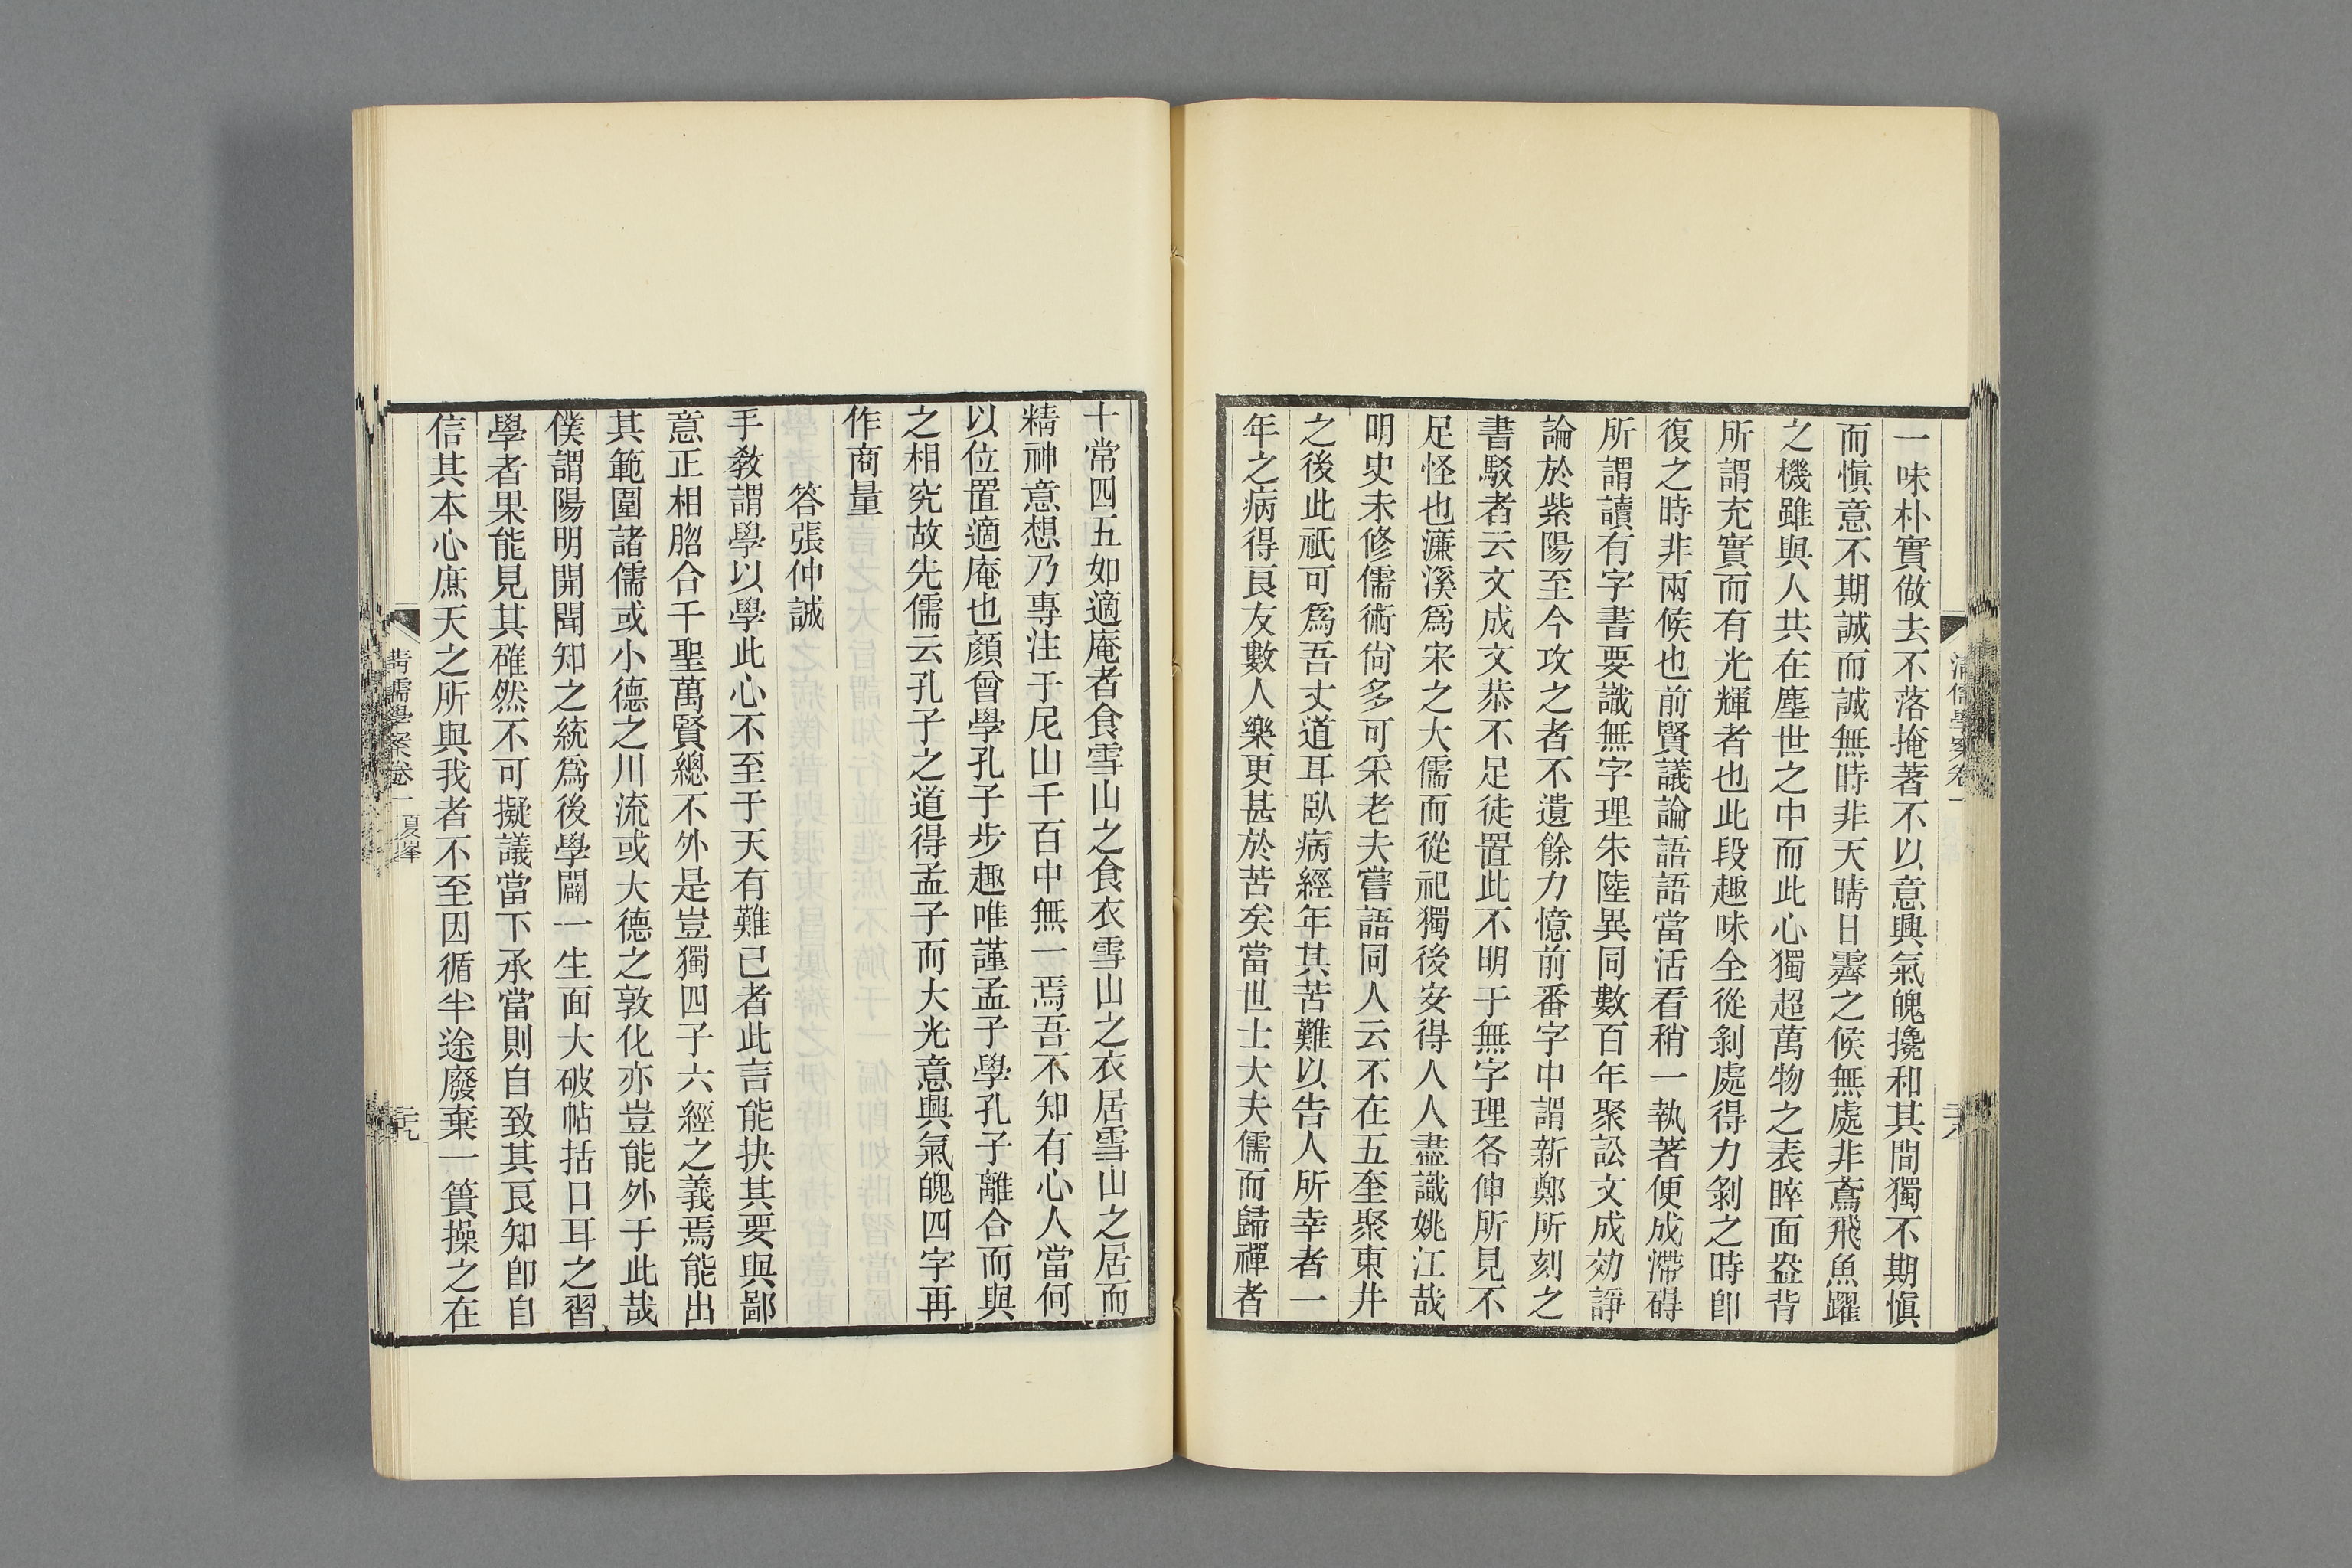 一味朴實做去不落掩著不以意興氣魄攙和其間獨不期愼
而愼意不期誠而誠無時非天晴日霽之候無處非鳶飛魚躍
之機雖與人共在塵世之中而此心獨超萬物之表睟面盎背
所謂充實而有光輝者也此段趣味全從剝處得力剝之時卽
復之時非兩候也前賢議論語語當活看稍一執著便成滯碍
所謂讀有字書要識無字理朱陸異同數百年聚訟文成効諍
論於紫陽至今攻之者不遺餘力憶前番字中謂新鄭所刻之
書駁者云文成文恭不足徒置此不明于無字理各伸所見不
足怪也濂溪爲宋之大儒而從祀獨後安得人人盡識姚江哉
明史未修儒術尙多可采老夫嘗語同人云不在五奎聚東井
之後此祇可爲吾丈道耳臥病經年其苦難以告人所幸者一
年之病得良友數人樂更甚於苦矣當世士大夫儒而歸禪者
清儒學案卷一
二十八
十常四五如適庵者食雪山之食衣雪山之衣居雪山之居而
精神意想乃專注于尼山千百中無一焉吾不知有心人當何
以位置適庵也顏曾學孔子步趣唯謹孟子學孔子離合而與
之相究故先儒云孔子之道得孟子而大光意興氣魄四字再
作商量
答張仲誠
手敎謂學以學此心不至于天有難已者此言能抉其要與鄙
意正相脗合千聖萬賢總不外是豈獨四子六經之義焉能出
其範圍諸儒或小德之川流或大德之敦化亦豈能外于此哉
僕謂陽明開聞知之統爲後學闢一生面大破帖括口耳之習
學者果能見其確然不可擬議當下承當則自致其良知卽自
信其本心庶天之所與我者不至因循半途廢棄一簣操之在
清儒學案卷一 夏峯
二十九